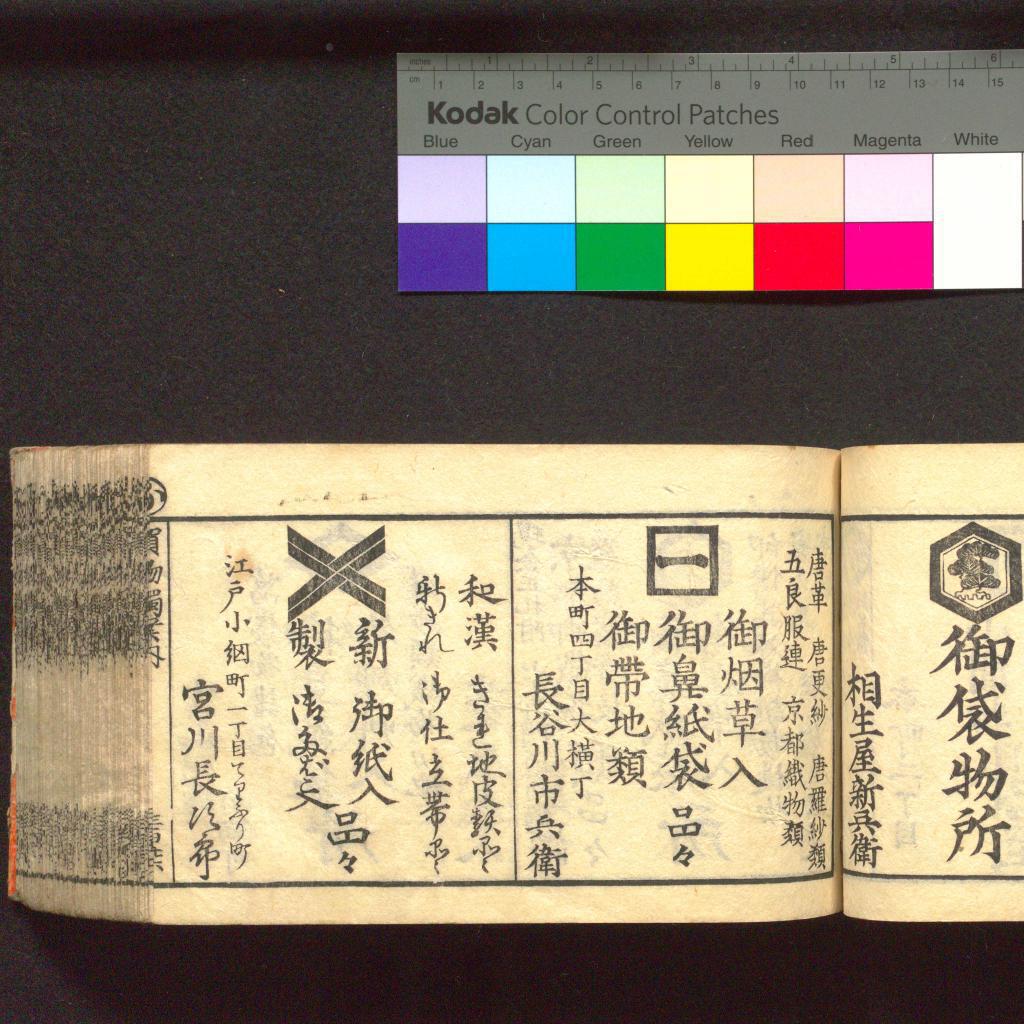 inches 1 2 3 4 5 6
cm 1 2 3 4 5 6 7 8 9 10 11 12 13 14 15
Kodak Color Control Patches
Blue Cyan Green Yellow Red Magenta White
御袋物所
相生屋新兵衛
唐革 唐更紗 唐羅紗類
五良服連 京都織物類
一
御烟草入
御鼻紙袋 品々
御帯地類
本町四丁目大横丁
長谷川市兵衛
和漢 きれ地皮類品々
新きれ 御仕立帯品々
新製 御紙入 御たばこ入 品々
江戸小網町一丁目てりふり町
宮川長次郎
買物獨案内